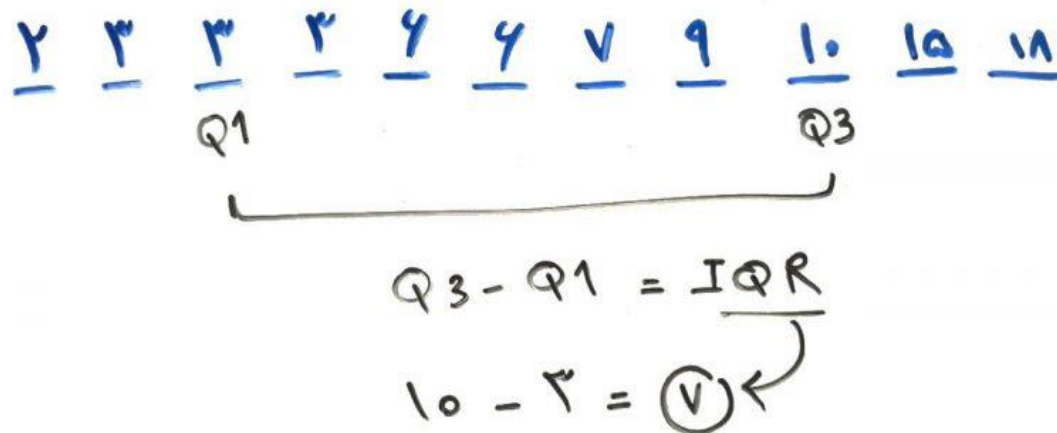 ۲ ۳ ۳ ۳ ۶ ۶ ۷ ۹ ۱۰ ۱۵ ۱۸
Q1 Q3
Q3 - Q1 = IQR
۱۰ - ۳ = ۷